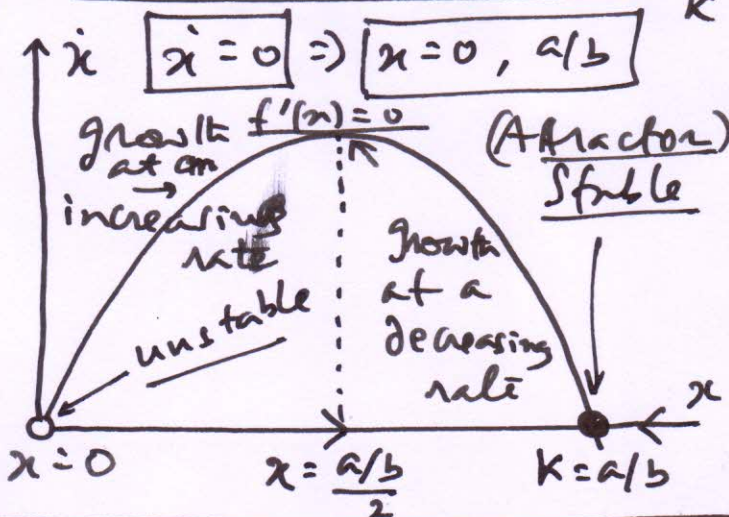 K
ẋ
ẋ = 0 ⇒ x = 0, a/b
growth
at an
increasing
rate
f'(x) = 0
(Attractor)
Stable
unstable
growth
at a
decreasing
rate
x
x = 0
x = a/b
2
K = a/b